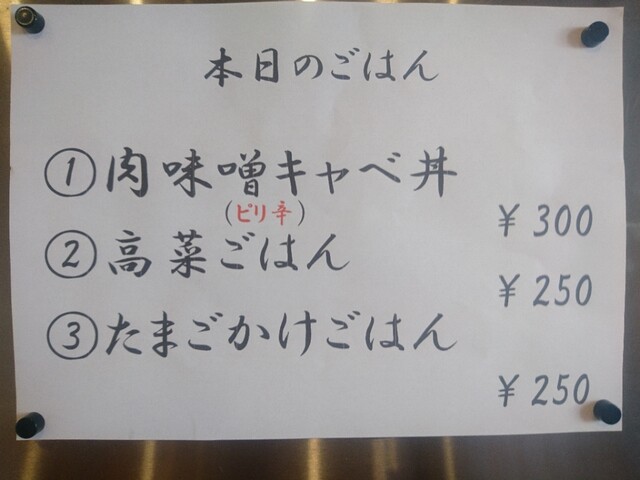 本日のごはん
①肉味噌キャベ丼
(ピリ辛)
¥300
②高菜ごはん
¥250
③たまごかけごはん
¥250